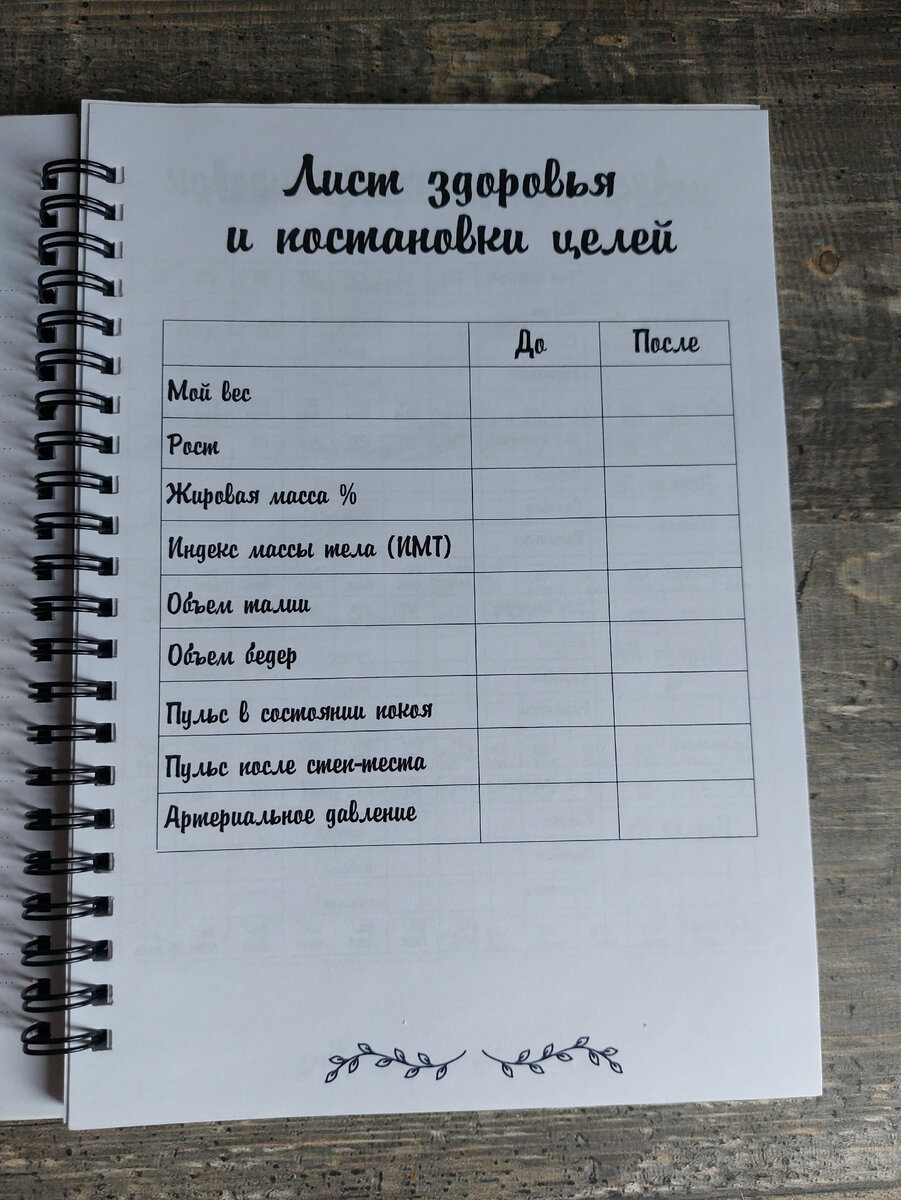 Лист здоровья
и постановки целей
До После
Мой вес
Рост
Жировая масса %
Индекс массы тела (ИМТ)
Объем талии
Объем бедер
Пульс в состоянии покоя
Пульс после степ-теста
Артериальное давление